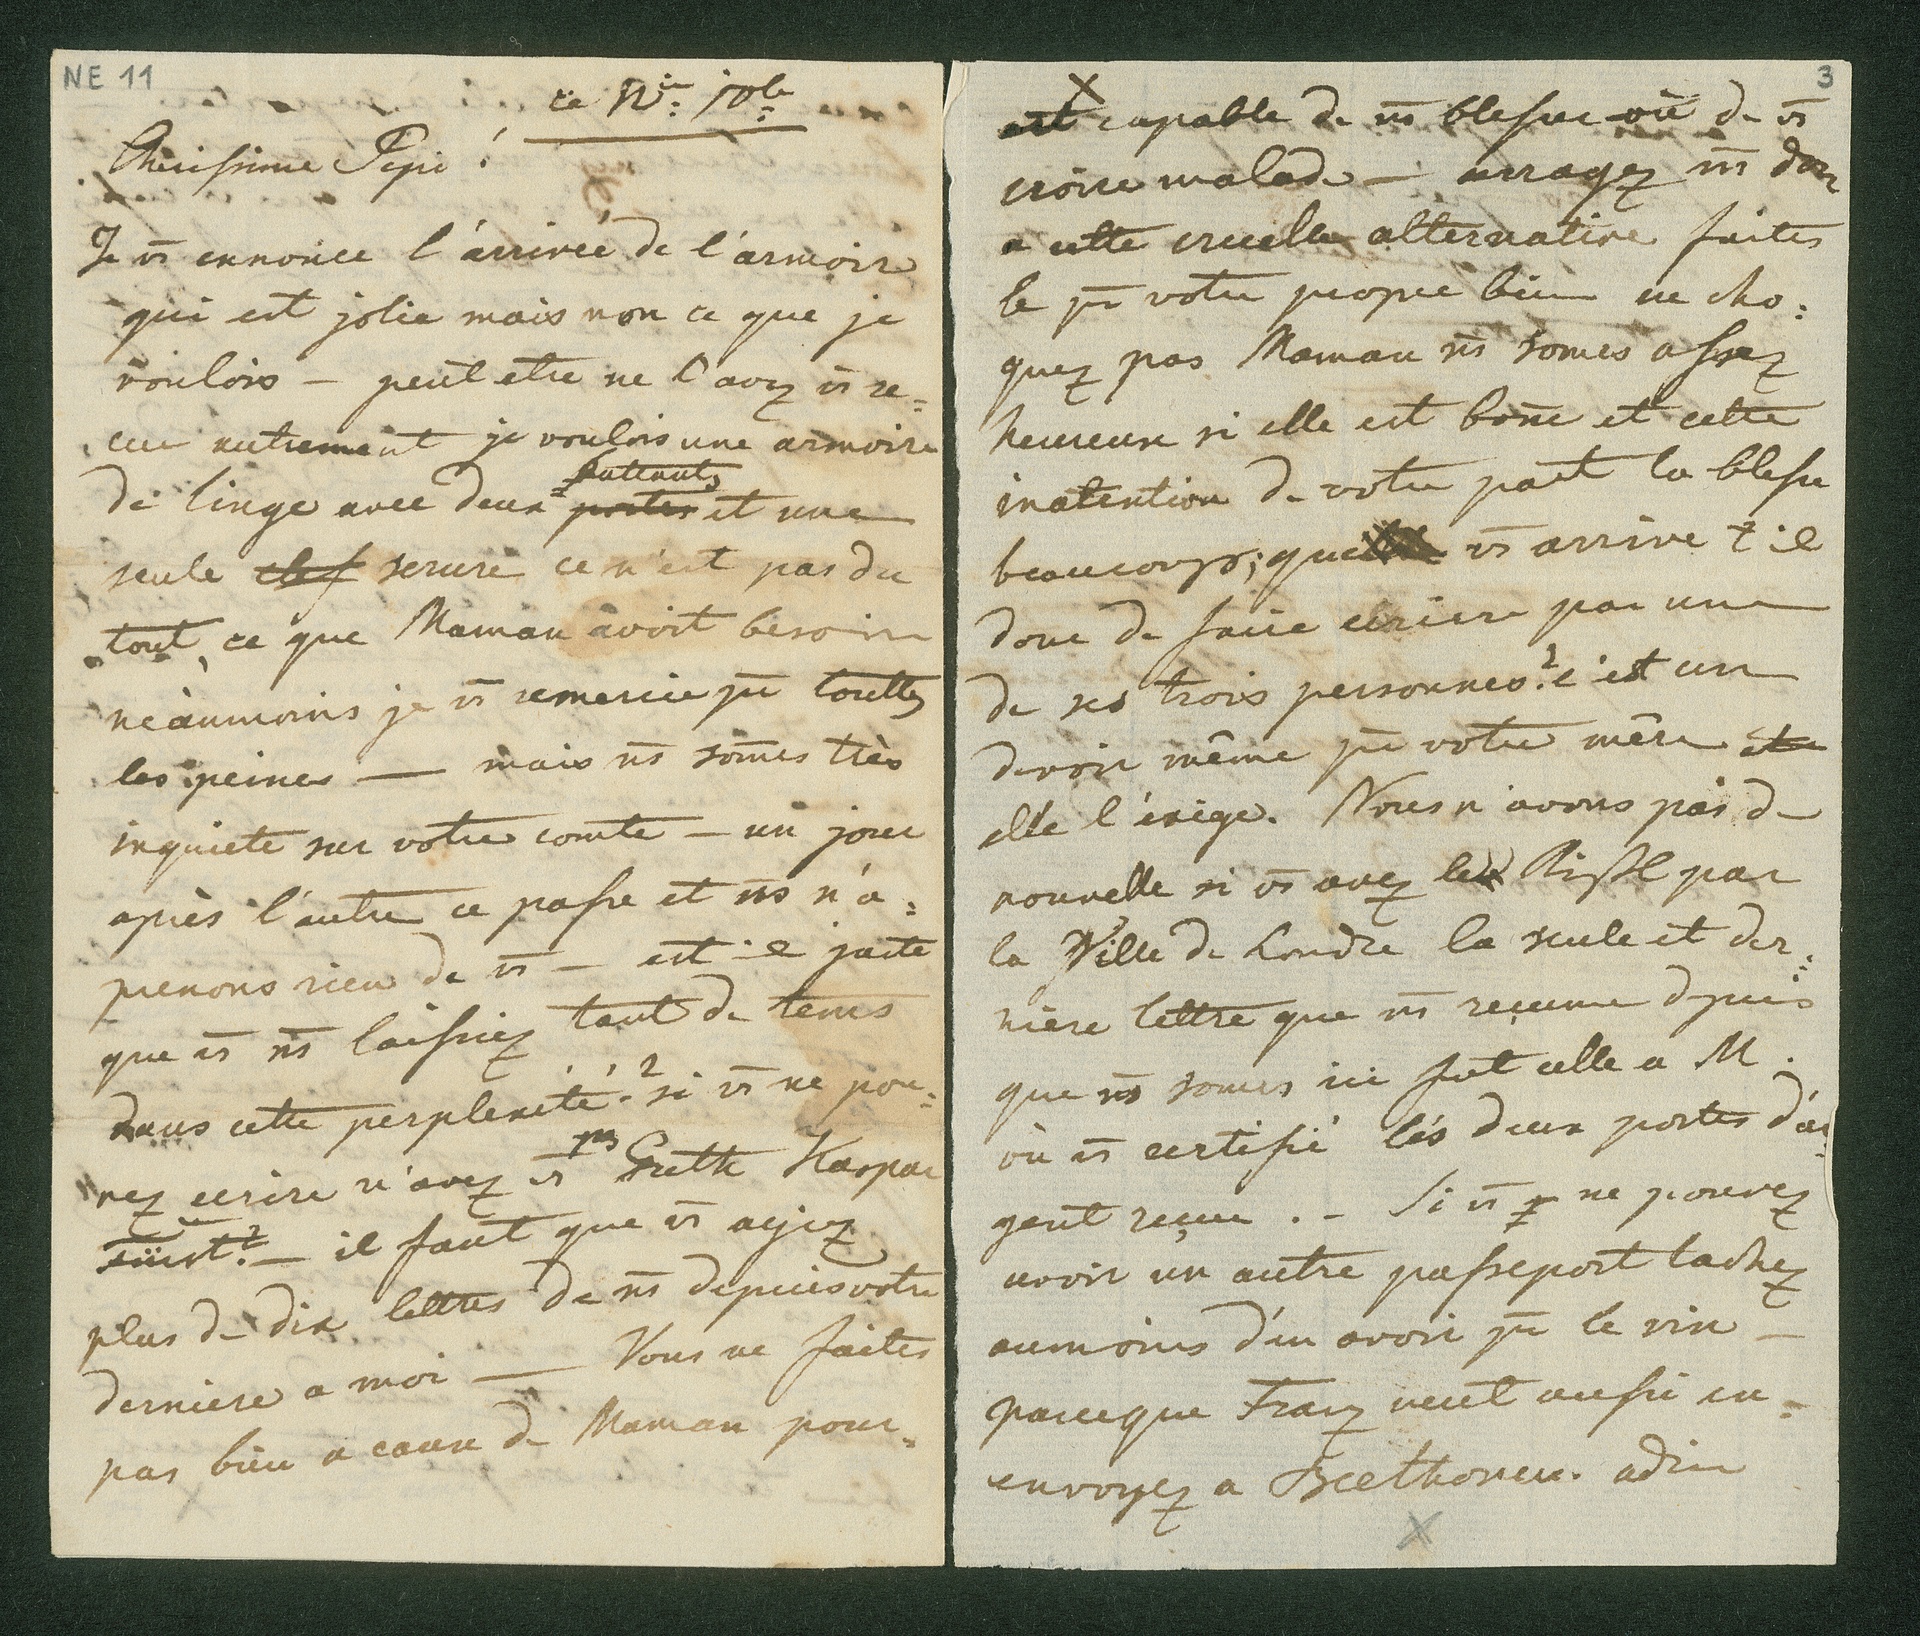 NE 11
ce 10br
Cherissime Pepi !
Je vs ennonce l'àrriveé de l'armoire
qui est jolie mais non ce que je
voulois – peut etre ne l'avez vs re=
cue autrement je voulois une armoire
de linge avec deux portes battants et une
seule clef serure ce n'est pas du
tout ce que Maman avoit besoin
neànmoins je vs remercie pr toutes
les peines — mais ns somes tres
inquiete sur votre comte – un jour
après l'autre ce passe et ns n'a=
prenons rien de vs – est-il juste
que vs ns laissiez tant de tems
dans cette perplexité ? si vs ne pou=
vez ecrire n'avez vs pas Greth Kaspar
? – il faut que vs ayiez
plus de dix lettres de ns depuis votre
derniere a moi — Vous ne faites
pas bien a cause de Maman pour=
3
est capable de ns blesser où de vs
croire malade – arragez ns donc
a cette cruelle alternative faites
le pr votre propre bien ne cho=
quez pas Maman ns somes assez
heureux si elle est bone et cette
inatention de votre part la blesse
beaucoup; que vs arrive t-il
donc de faire ecriere par une
de ses trois personnes? c'est un
devoir même pr votre mère
elle l'exige. Nous n'avons pas de
nouvelle si vs avez le par
la Ville de Londre la seule et der=
niere lettre que ns reçume depuis
que ns somes ici fut celle a M.
où vs certifié lés deux portes d'ar=
gent reçue . – Si vs ne pouvez
avoir un autre passeport tachez
aumoins d'en avoir pr le vin –
parceque Franz veut aussi en=
envoyez a Beethoven. adieu